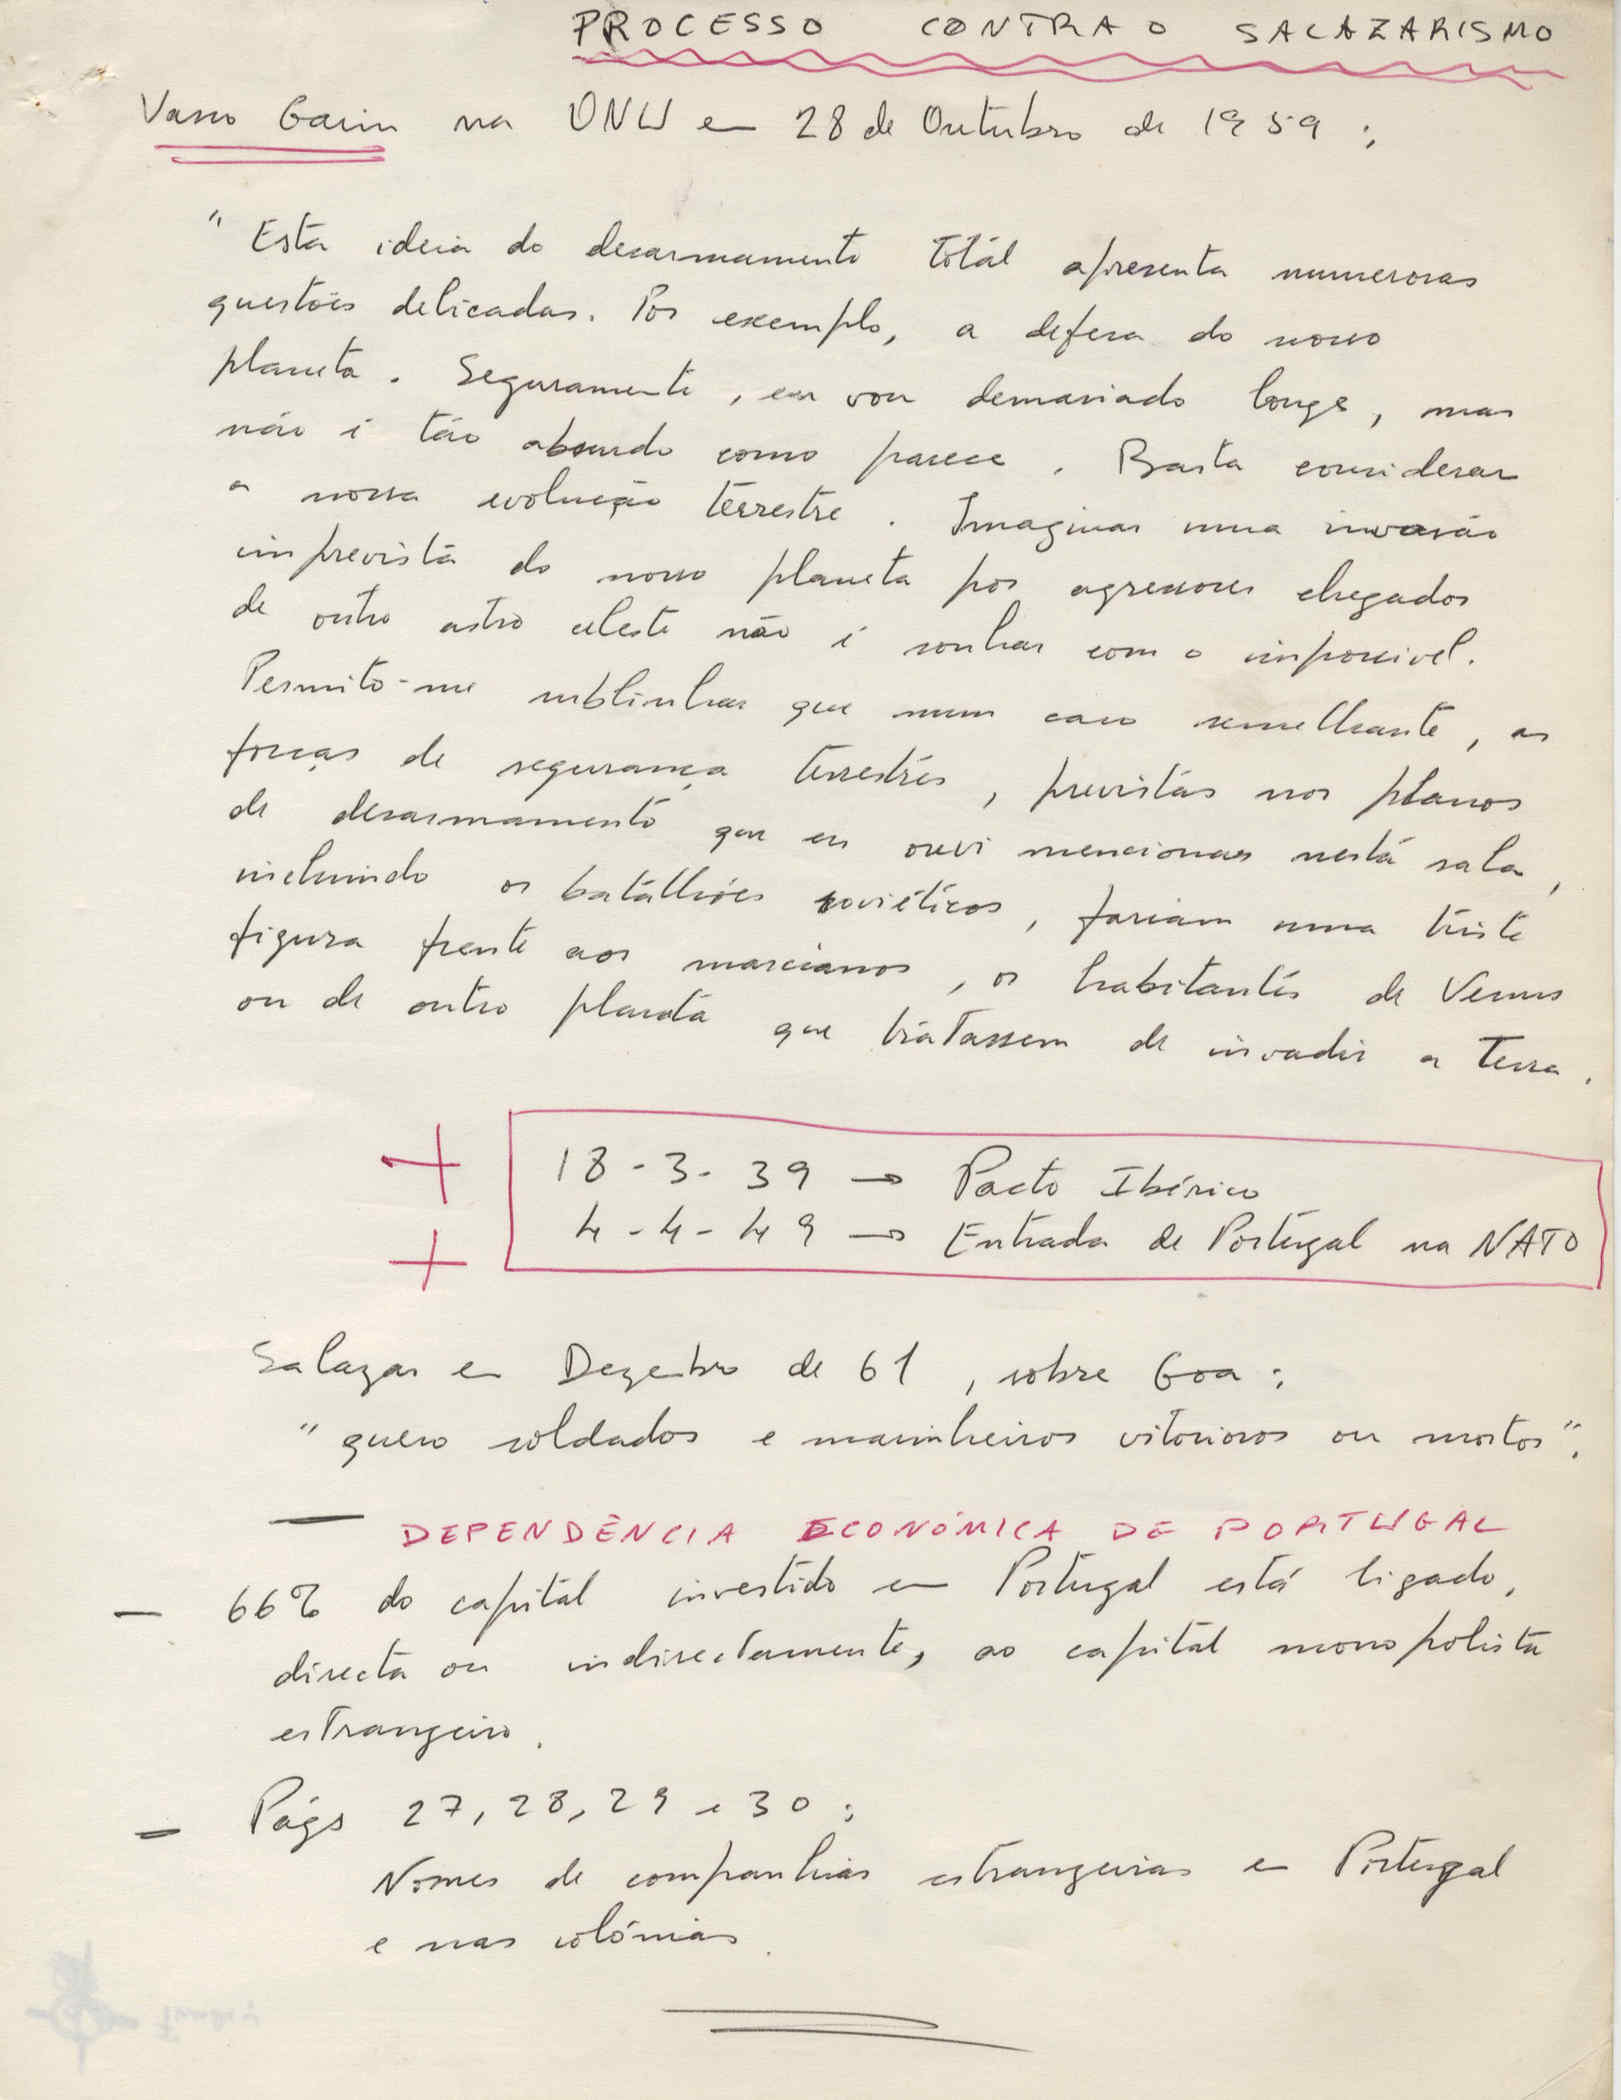 PROCESSO CONTRA O SALAZARISMO
Vasco Garin na ONU em 28 de Outubro de 1959:
"Esta ideia do desarmamento total apresenta numerosas
questões delicadas. Por exemplo, a defesa do nosso
planeta. Seguramente, eu vou demasiado longe, mas
não é tão absurdo como parece. Basta considerar
a nossa evolução terrestre. Imaginar uma invasão
imprevista do nosso planeta por agressores chegados
de outro astro celeste não é sonhar com o impossível.
Permito-me sublinhar que num caso semelhante, as
forças de segurança terrestres, previstas nos planos
de desarmamento que eu ouvi mencionar nesta sala,
incluindo os batalhões soviéticos, fariam uma triste
figura frente aos marcianos, os habitantes de Venus
ou de outro planeta que tratassem de invadir a Terra.
+ 18-3-39 → Pacto Ibérico
+ 4-4-49 → Entrada de Portugal na NATO
Salazar em Dezembro de 61, sobre Goa:
"quero soldados e marinheiros vitoriosos ou mortos".
— DEPENDÊNCIA ECONÓMICA DE PORTUGAL
— 66% do capital investido em Portugal está ligado,
directa ou indirectamente, ao capital monopolista
estrangeiro.
— Págs 27, 28, 29 e 30:
Nomes de companhias estrangeiras em Portugal
e nas colónias.